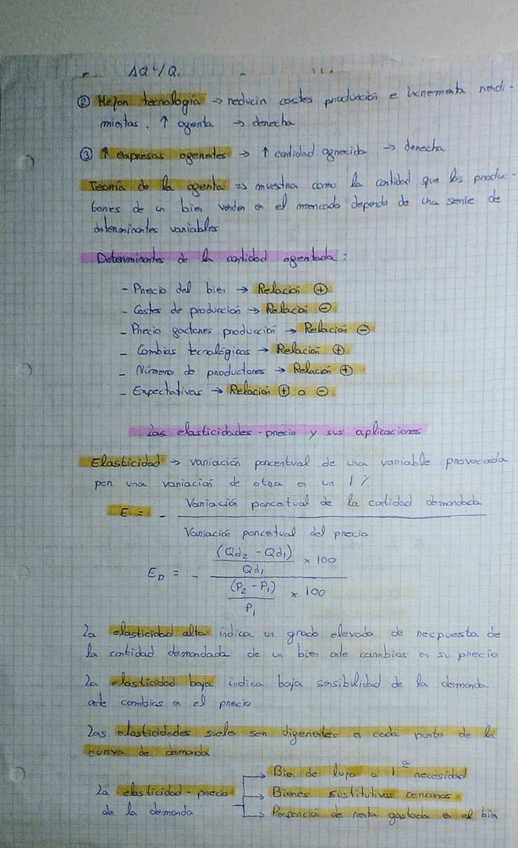 ΔQ /Q
② Mejora tecnología → reducir costes producción e incrementa rendi-
mientos. ↑ oferta → derecha
③ ↑ empresas oferentes → ↑ cantidad ofrecida → derecha
Teoría de la oferta => muestra como la cantidad que los produc-
tores de un bien venden en el mercado depende de una serie de
determinantes variables
Determinantes de la cantidad ofertada:
- Precio del bien → Relación ⊕
- Costes de producción → Relación ⊖
- Precio factores producción → Relación ⊖
- Cambios tecnológicos → Relación ⊕
- Número de productores → Relación ⊕
- Expectativas → Relación ⊕ o ⊖
Las elasticidades-precio y sus aplicaciones
Elasticidad → variación porcentual de una variable provocada
por una variación de otra en un 1%
E = - Variación porcentual de la cantidad demandada
Variación porcentual del precio
(Qd₂ - Qd₁)
Qd₁ × 100
E_D = -
(P₂ - P₁)
P₁ × 100
La elasticidad alta indica un grado elevado de respuesta de
la cantidad demandada de un bien ante cambios en su precio
La elasticidad baja indica baja sensibilidad de la demanda
ante cambios en el precio
Las elasticidades suele ser diferentes a cada punto de la
curva de demanda
→ Bien de lujo o 1ª necesidad
La elasticidad-precio → Bienes sustitutivos cercanos
de la demanda → Proporción de renta gastada en el bien